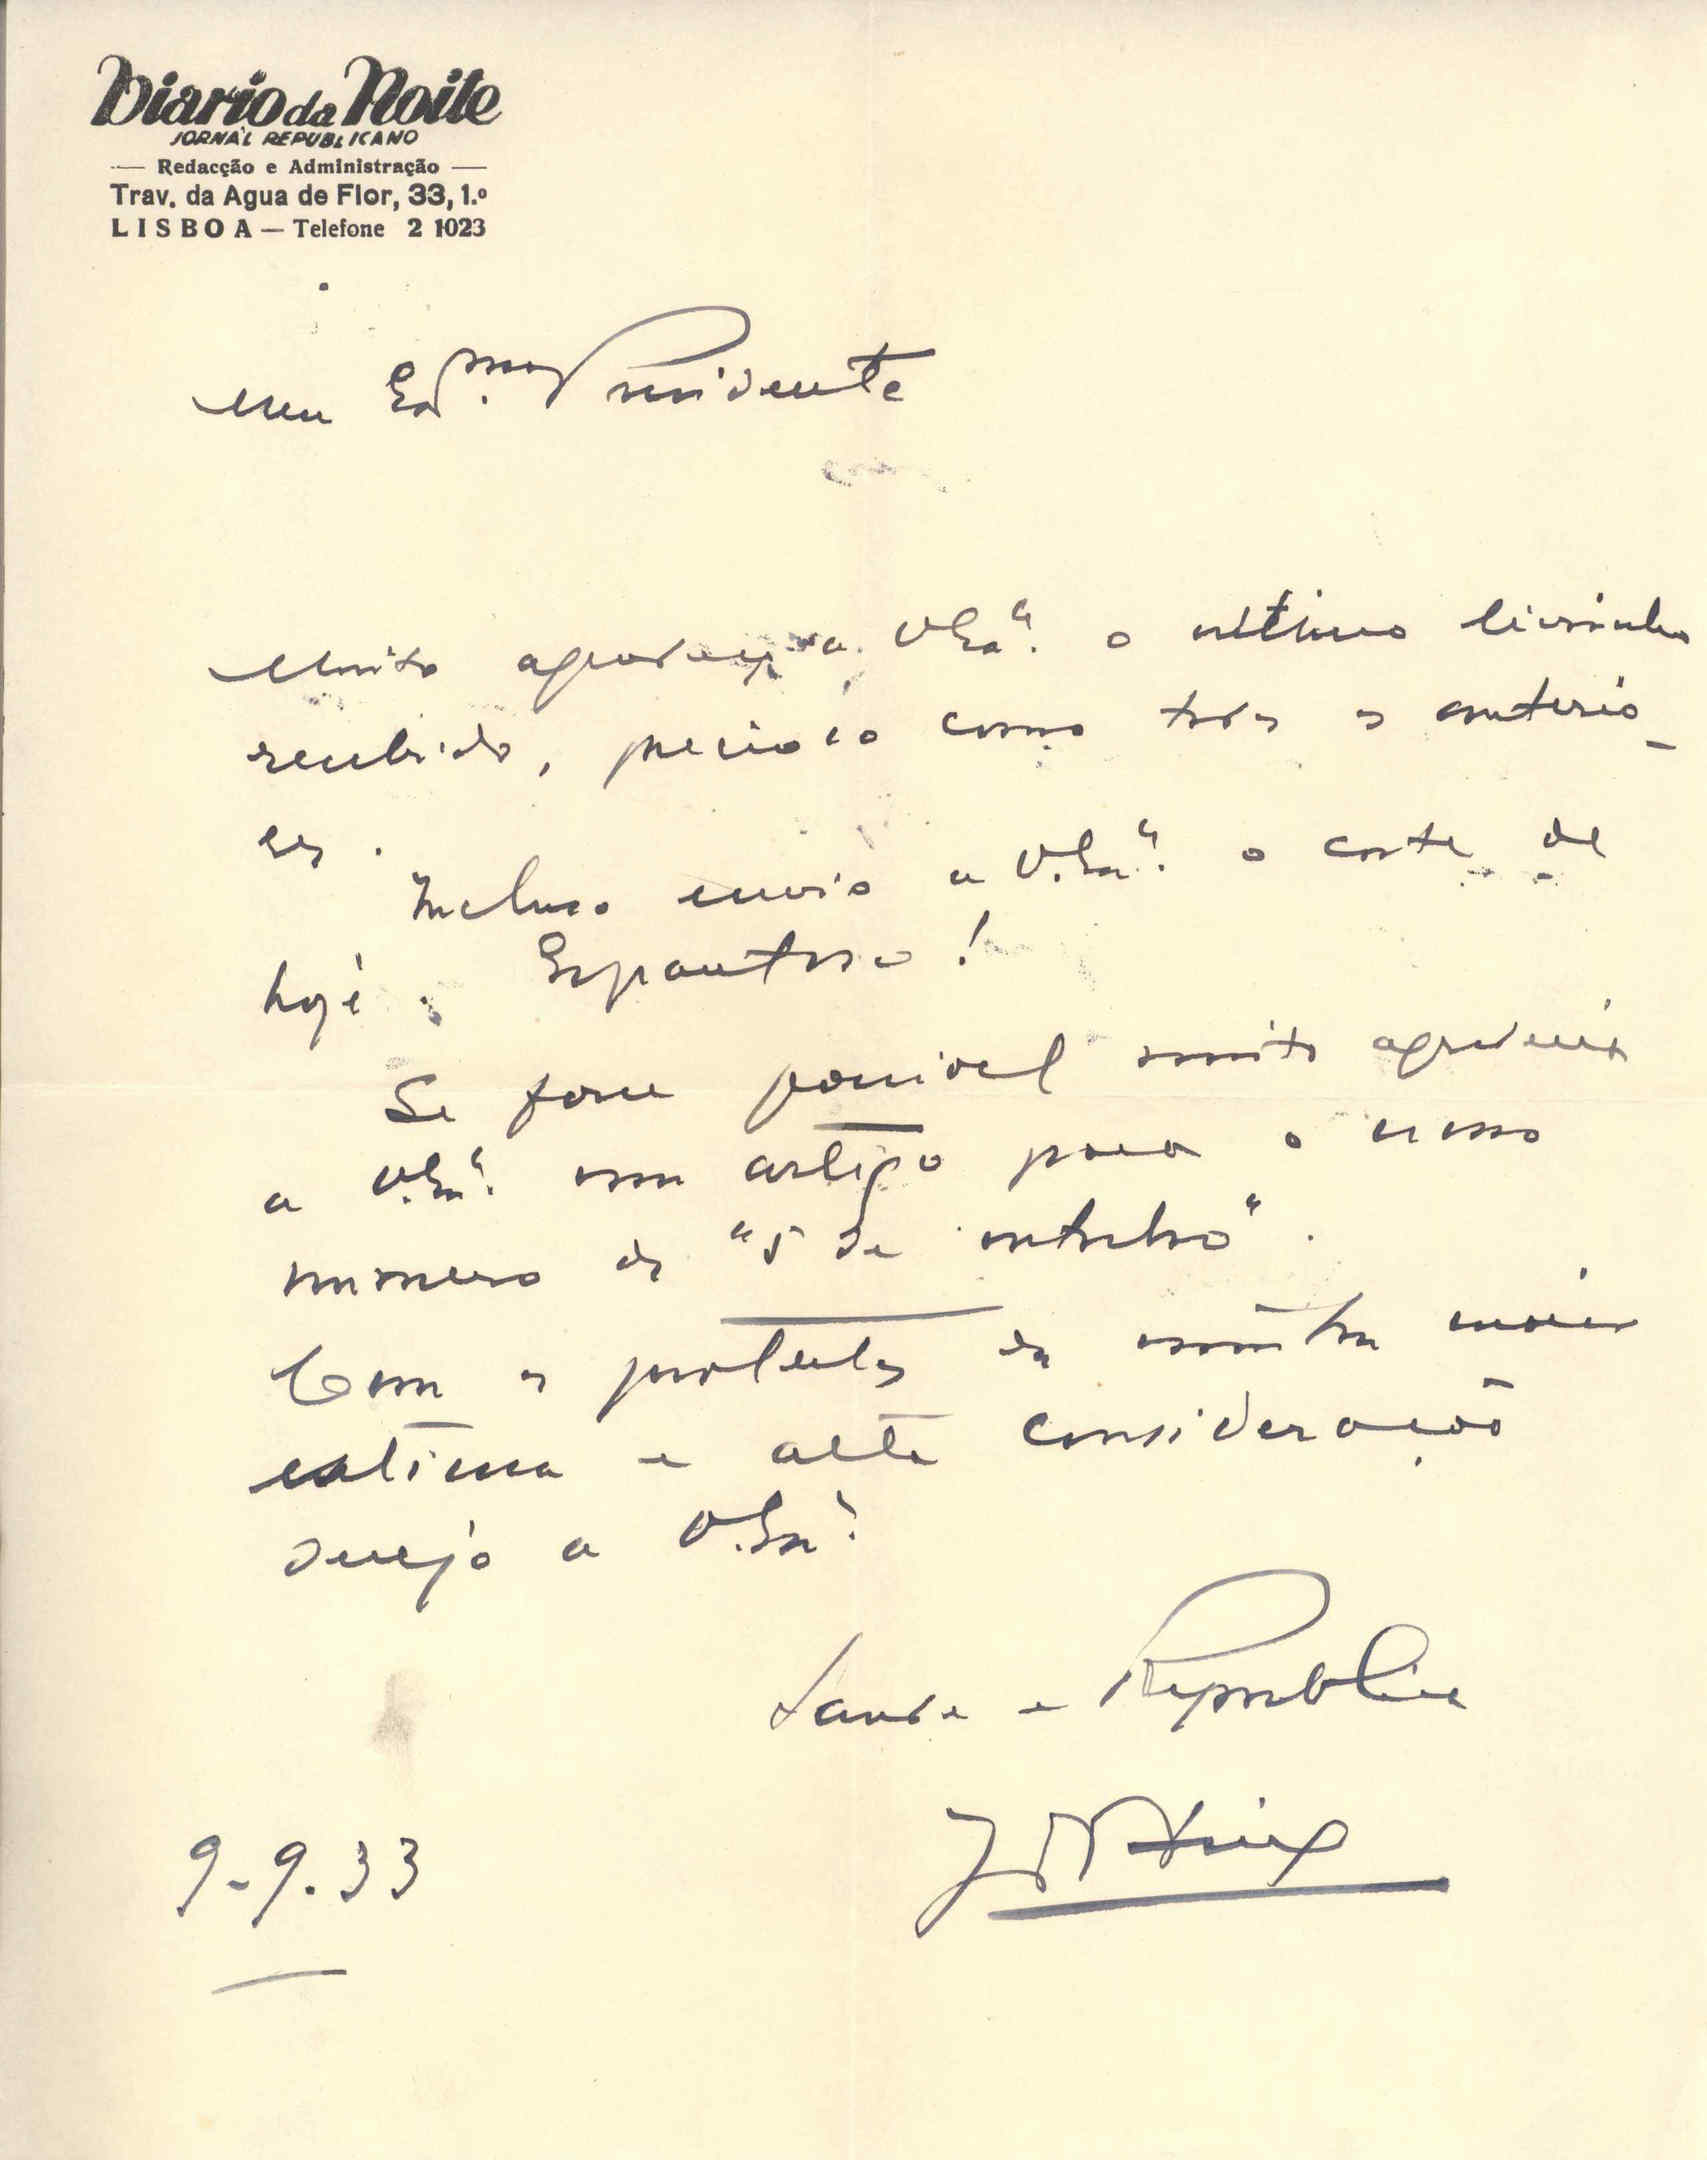 Diario da Noite
JORNAL REPUBLICANO
— Redacção e Administração —
Trav. da Agua de Flor, 33, 1.º
LISBOA — Telefone 2 1023
Meu Exmo. Presidente
Muito agradeço a V. Exa. o ultimo livrinho
recebido, precioso como todos os anterio-
res.
Incluso envio a V. Exa. o corte de
hoje. Espantoso!
Se fosse possivel muito agradecia
a V. Exa. um artigo para o nosso
numero de "5 de outubro".
Com os protestos da minha maior
estima e alta consideração
desejo a V. Exa.
Saude e Republica
9-9.33